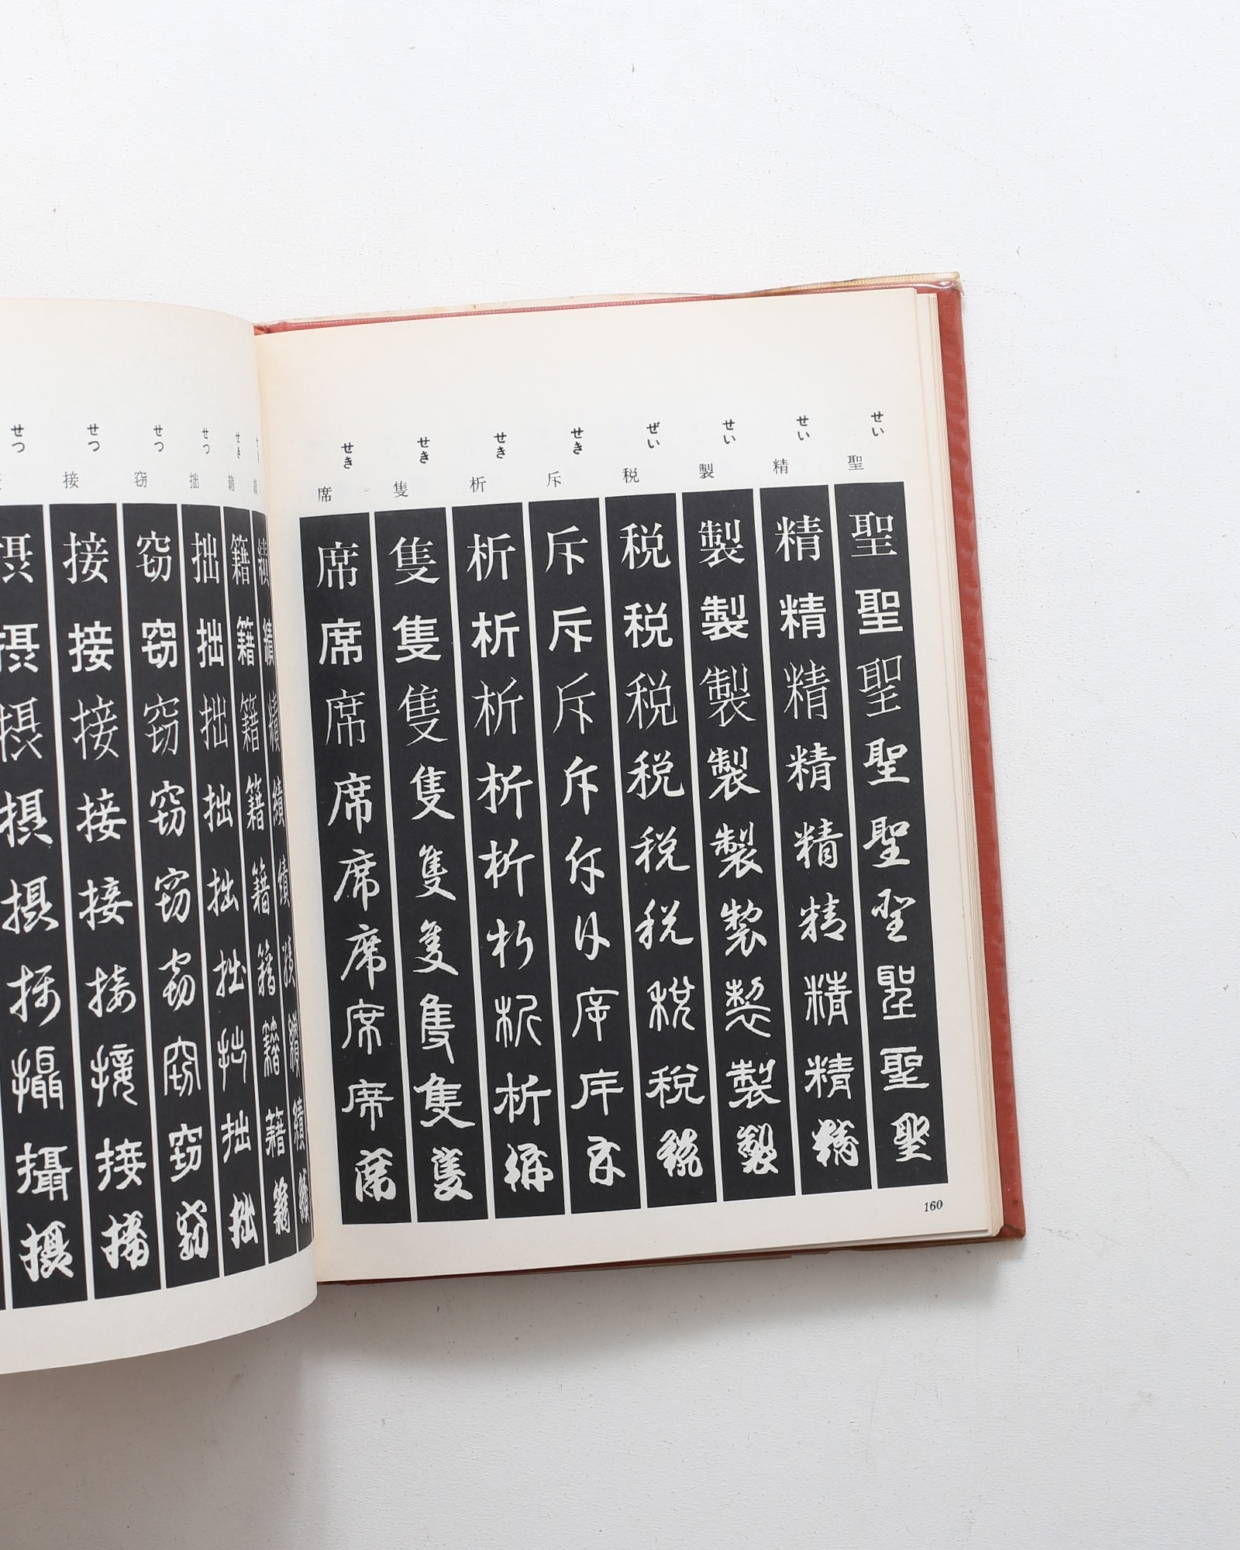 せい
聖
聖聖聖聖聖聖聖聖聖
せい
精
精精精精精精精精精
せい
製
製製製製製製製製製
ぜい
税
税税税税税税税税税
せき
斥
斥斥斥斥斥斥斥斥斥
せき
析
析析析析析析析析析
せき
隻
隻隻隻隻隻隻隻隻隻
せき
席
席席席席席席席席席
160
績績績績績績績績績
せき
籍
籍籍籍籍籍籍籍籍籍
せつ
拙
拙拙拙拙拙拙拙拙拙
せつ
窃
窃窃窃窃窃窃窃窃窃
せつ
接
接接接接接接接接接
せつ
摂摂摂摂摂摂攝攝摂